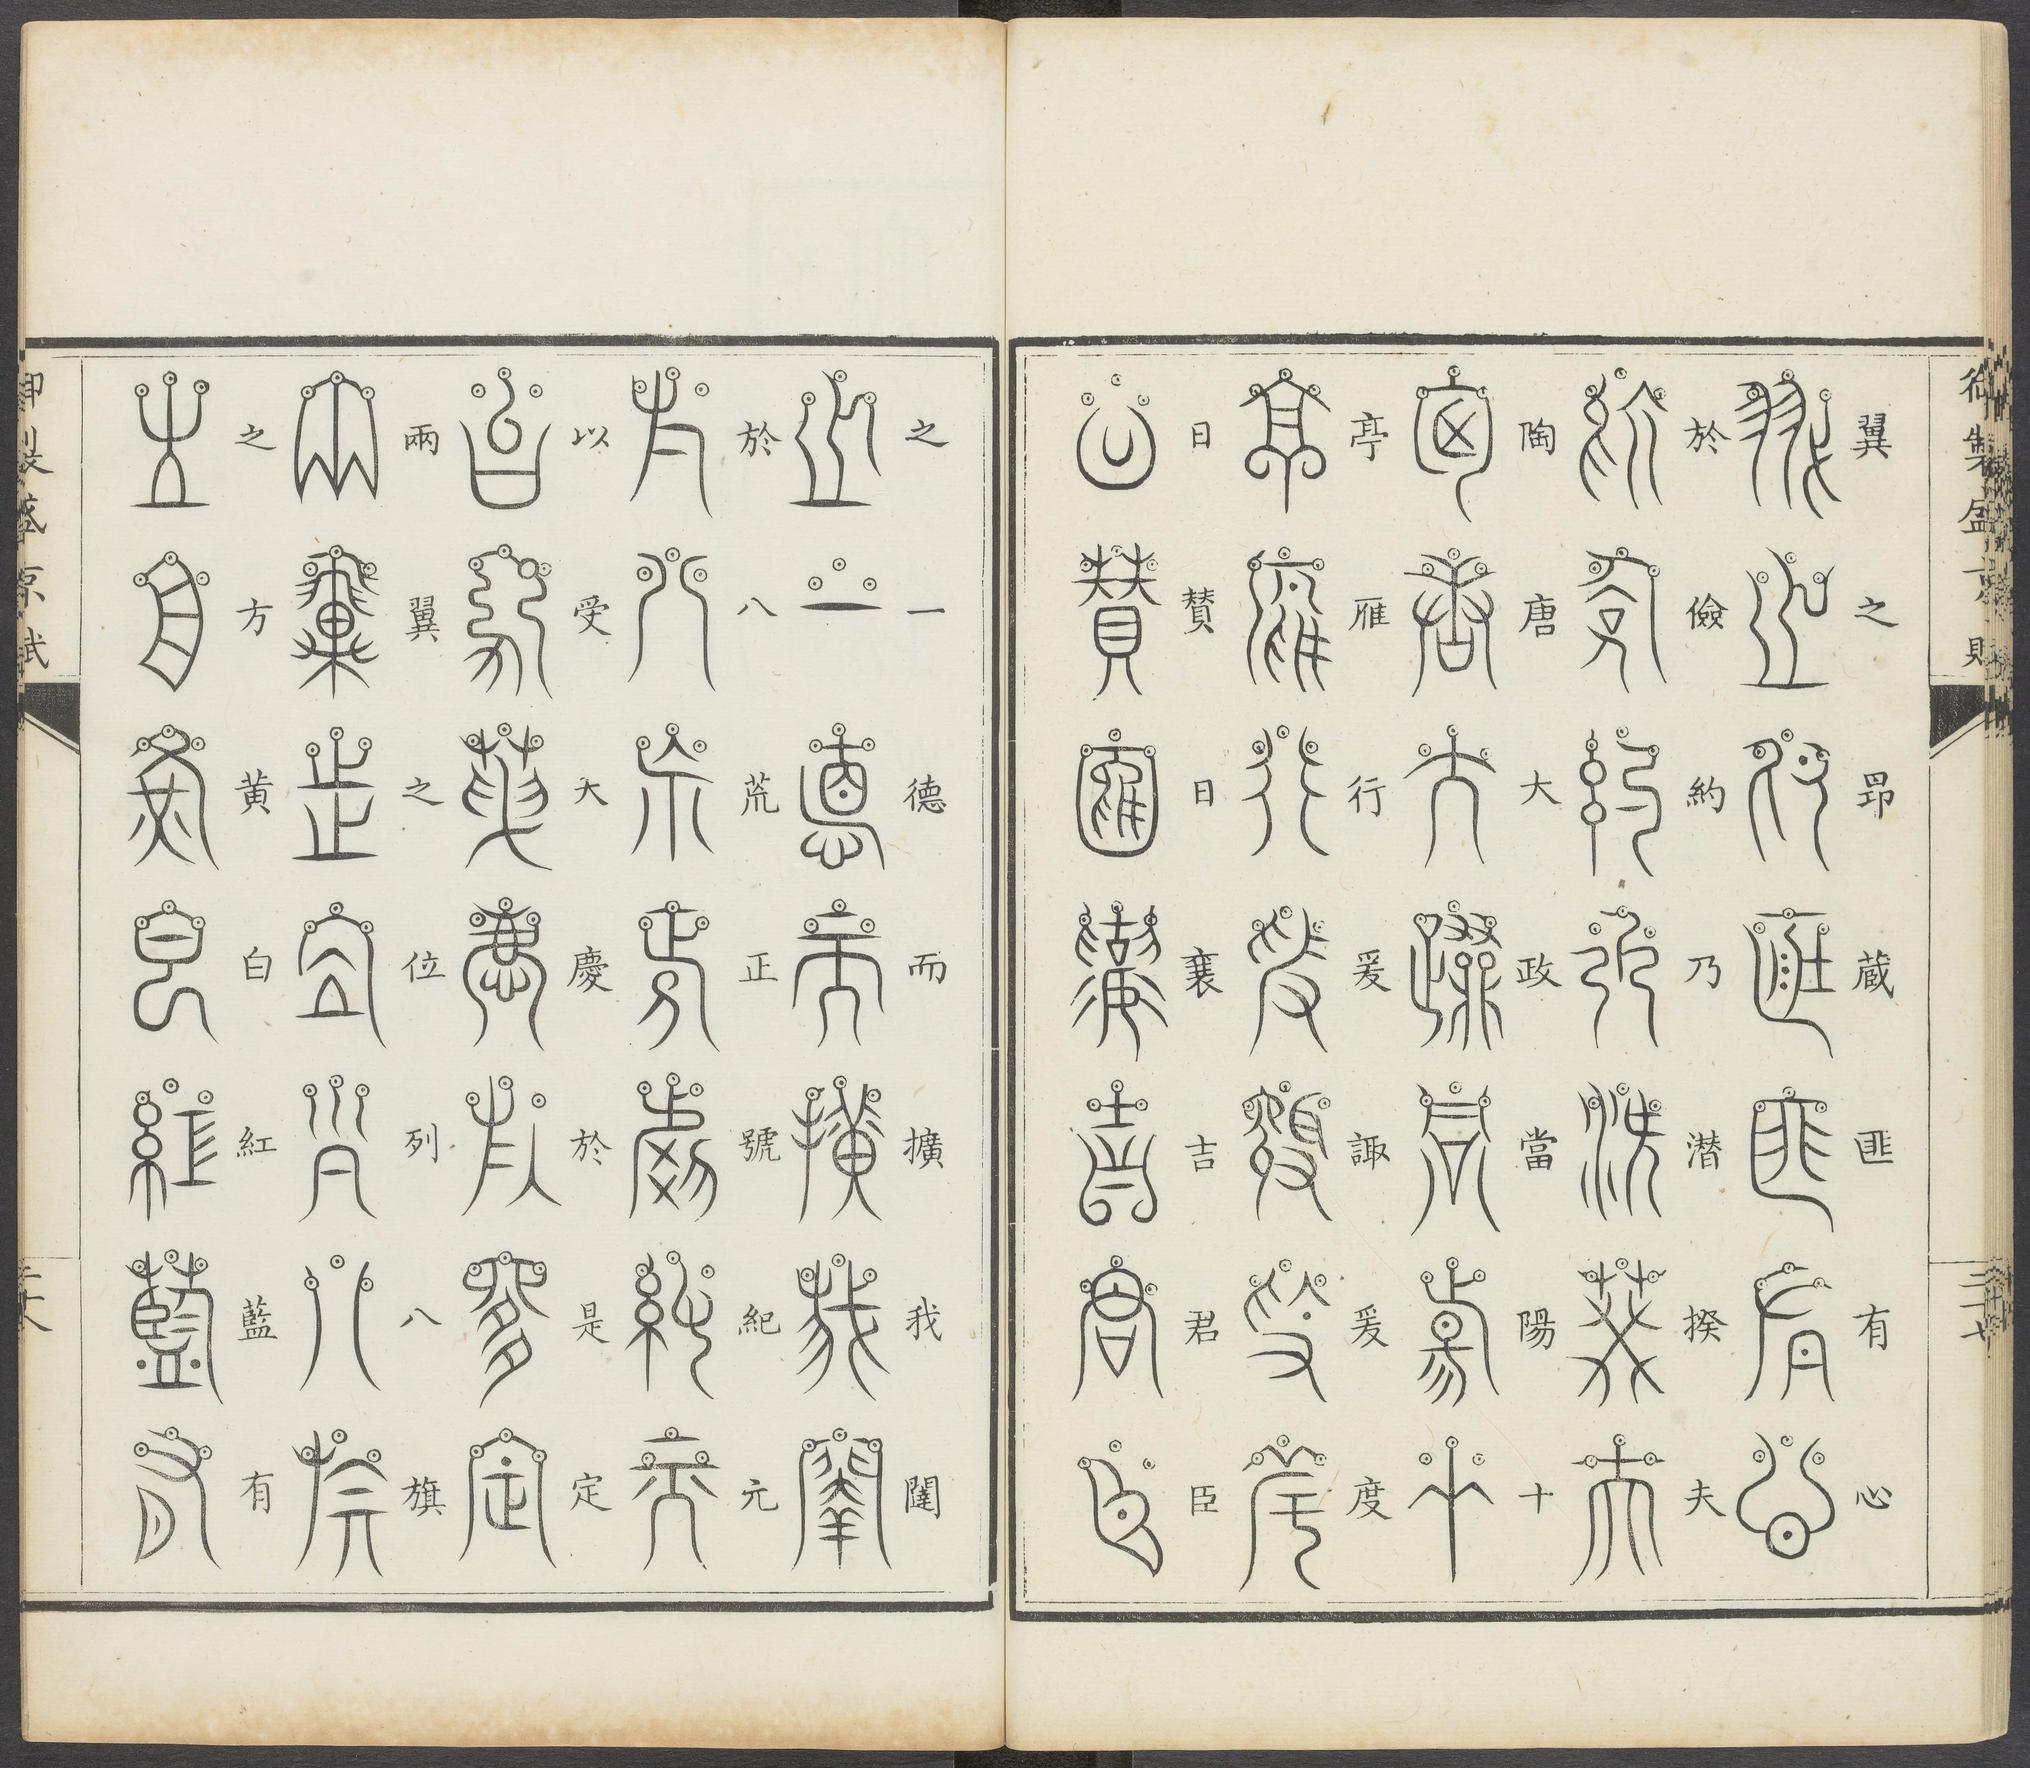 御製盛京賦
翼之昂蔵匪有心
於儉約乃潛揆夫
陶唐大政當陽十
亭雁行爰諏爰度
曰贊曰襄吉君臣
之一德而擴我闥
於八荒正號紀元
以受大慶於是定
兩翼之位列八旗
之方黃白紅藍有
御製盛京賦